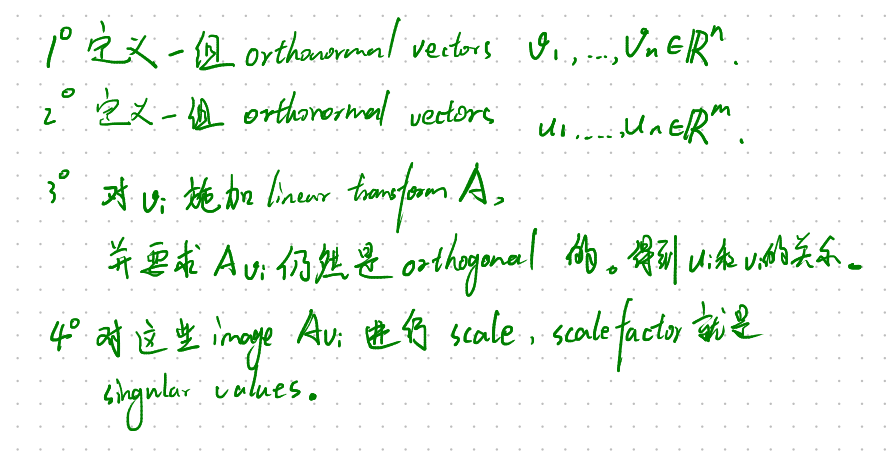 1° 定义一组 orthonormal vectors v₁,...,vₙ∈ℝⁿ.
2° 定义一组 orthonormal vectors u₁,...,uₙ∈ℝᵐ.
3° 对 vᵢ 施加 linear transform A,
并要求 Avᵢ 仍然是 orthogonal 的。得到 uᵢ和vᵢ的关系。
4° 对这些 image Avᵢ 进行 scale, scale factor 就是
singular values.